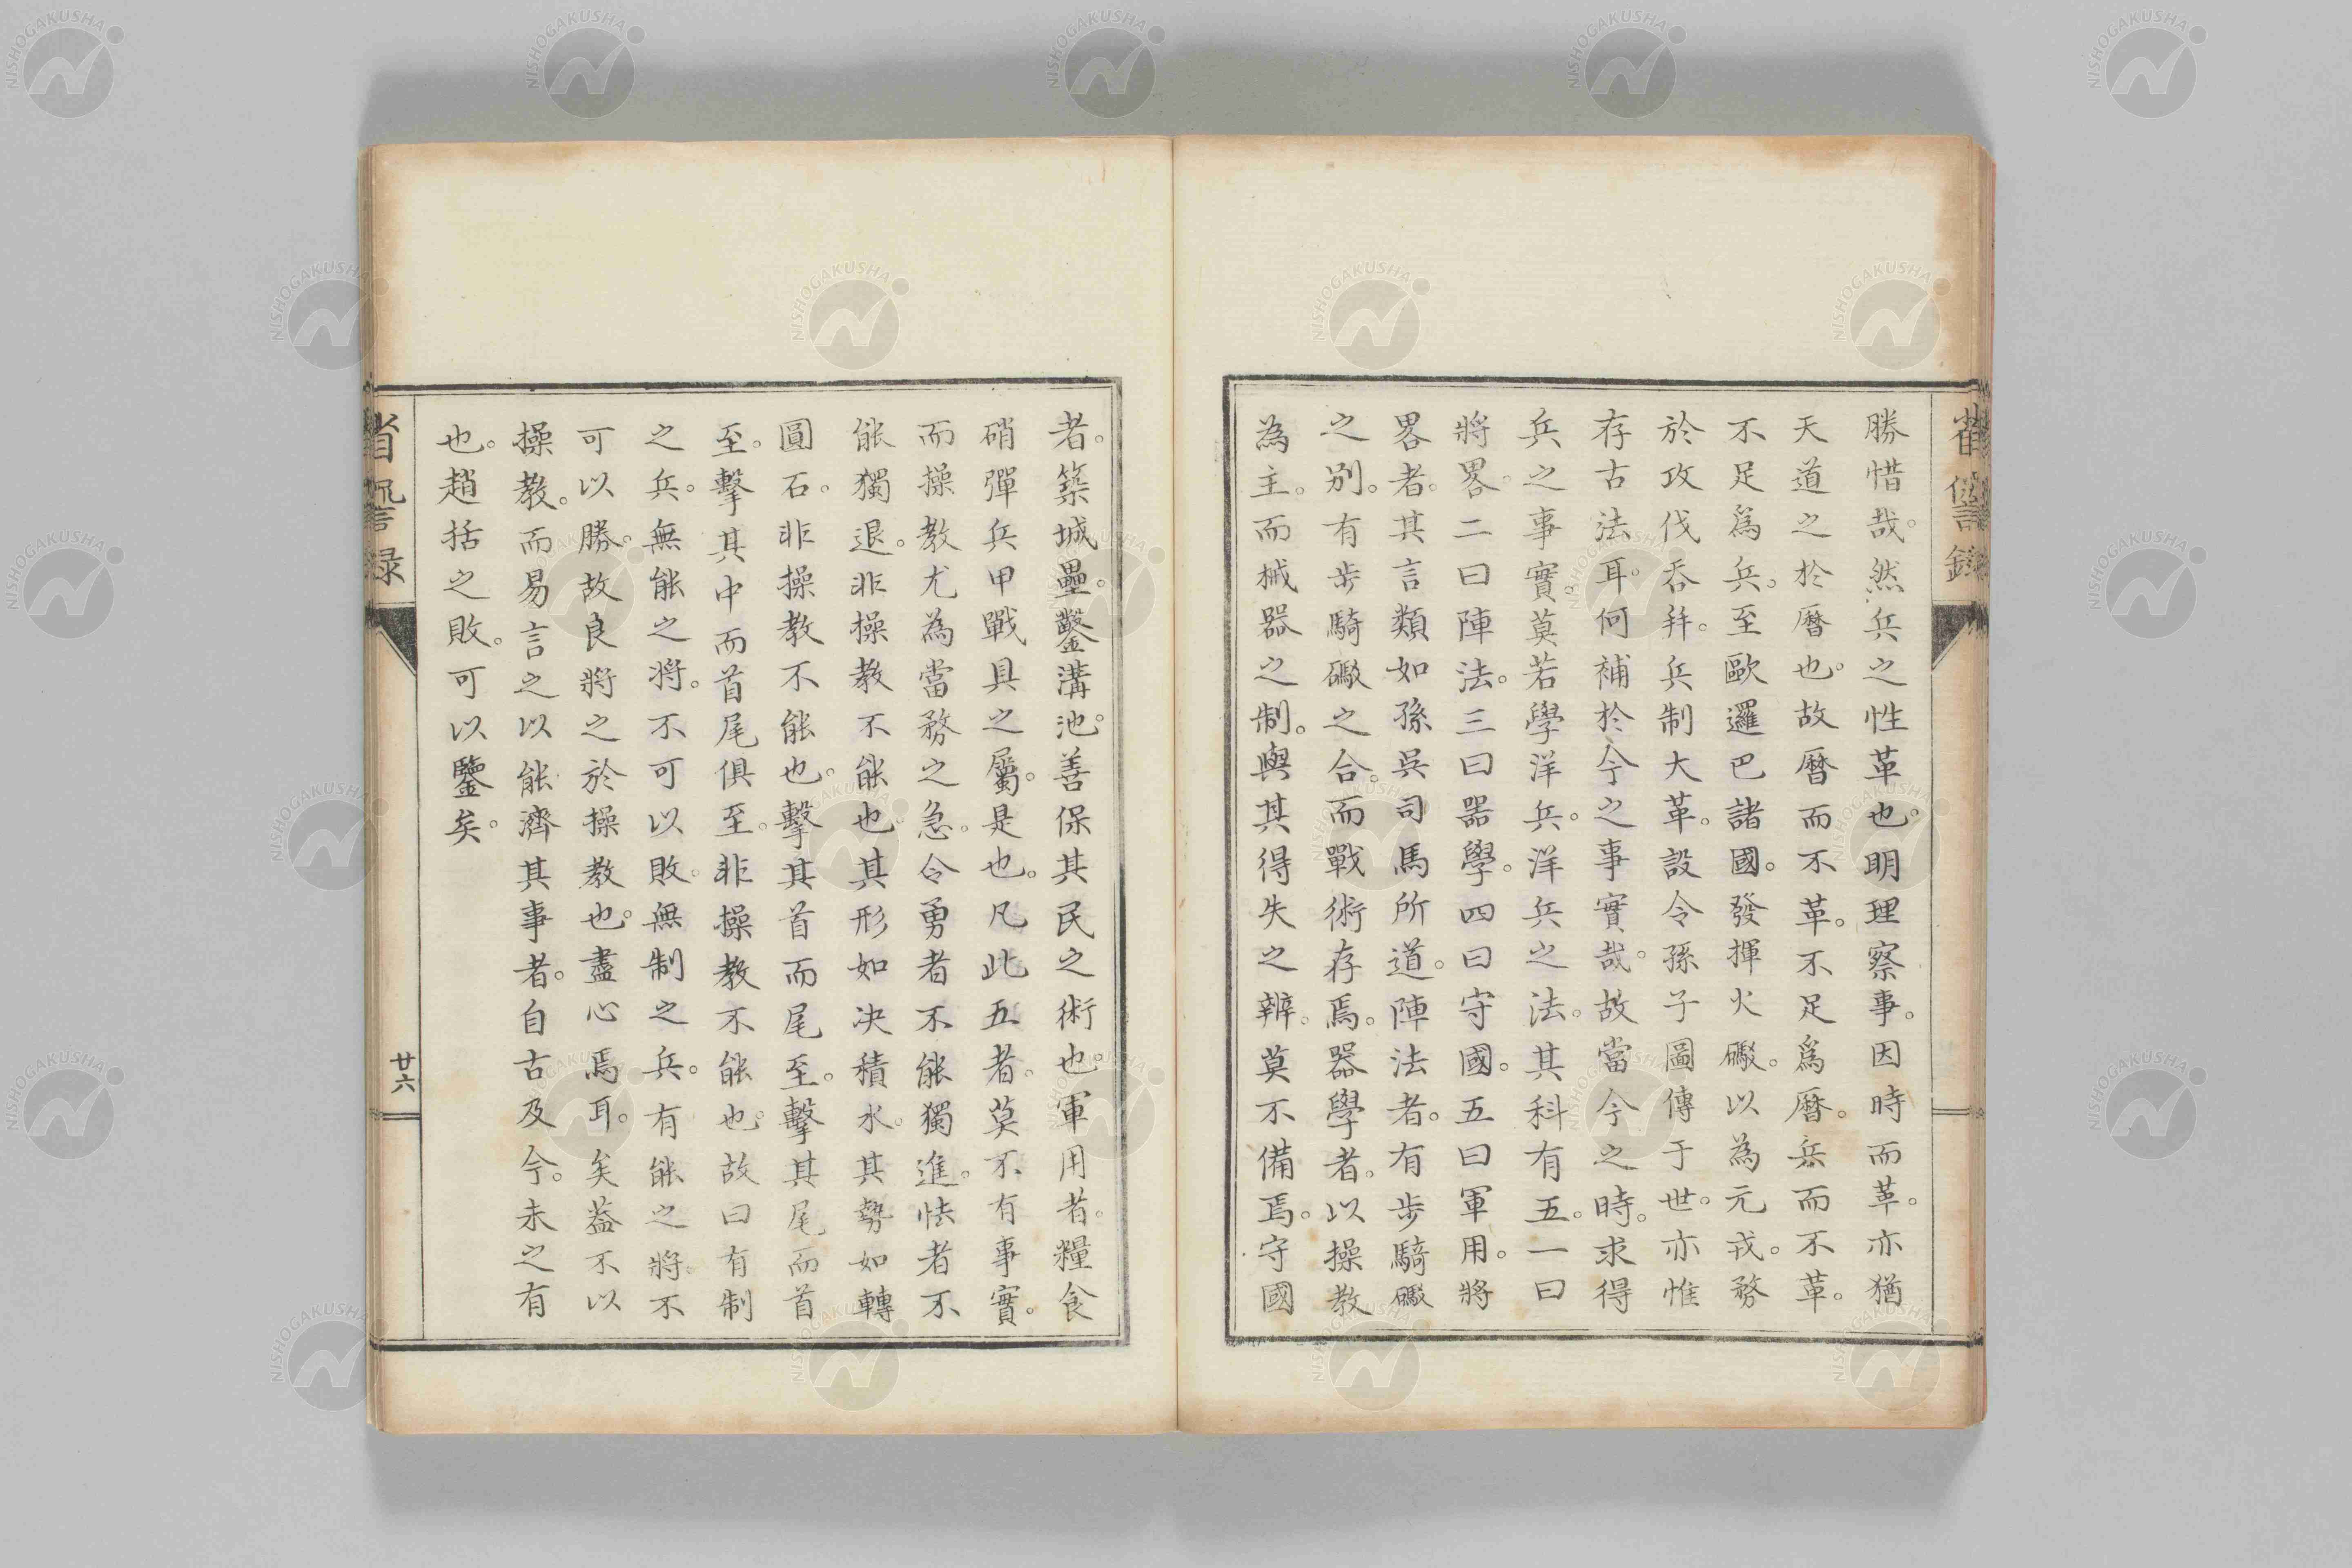 省諐錄
勝惜哉。然兵之性革也。明理察事。因時而革。亦猶
天道之於曆也。故曆而不革。不足爲曆。兵而不革。
不足爲兵。至歐邏巴諸國。發揮火礮。以為元戎。務
於攻伐吞并。兵制大革。設令孫子圖傳于世。亦惟
存古法耳。何補於今之事實哉。故當今之時。求得
兵之事實。莫若學洋兵。洋兵之法。其科有五。一曰
將畧。二曰陣法。三曰器學。四曰守國。五曰軍用。將
畧者。其言類如孫吳司馬所道。陣法者。有步騎礮
之別。有步騎礮之合。而戰術存焉。器學者。以操教
為主。而械器之制。與其得失之辨。莫不備焉。守國
者。築城壘。鑿溝池。善保其民之術也。軍用者。糧食
硝彈兵甲戰具之屬。是也。凡此五者。莫不有事實。
而操教尤為當務之急。令勇者不能獨進。怯者不
能獨退。非操教不能也。其形如決積水。其勢如轉
圓石。非操教不能也。擊其首而尾至。擊其尾而首
至。擊其中而首尾俱至。非操教不能也。故曰有制
之兵。無能之將。不可以敗。無制之兵。有能之將。不
可以勝。故良將之於操教也。盡心焉耳。矣葢不以
操教。而易言之以能濟其事者。自古及今。未之有
也。趙括之敗。可以鑒矣。
省諐錄
廿六
NISHOGAKUSHA